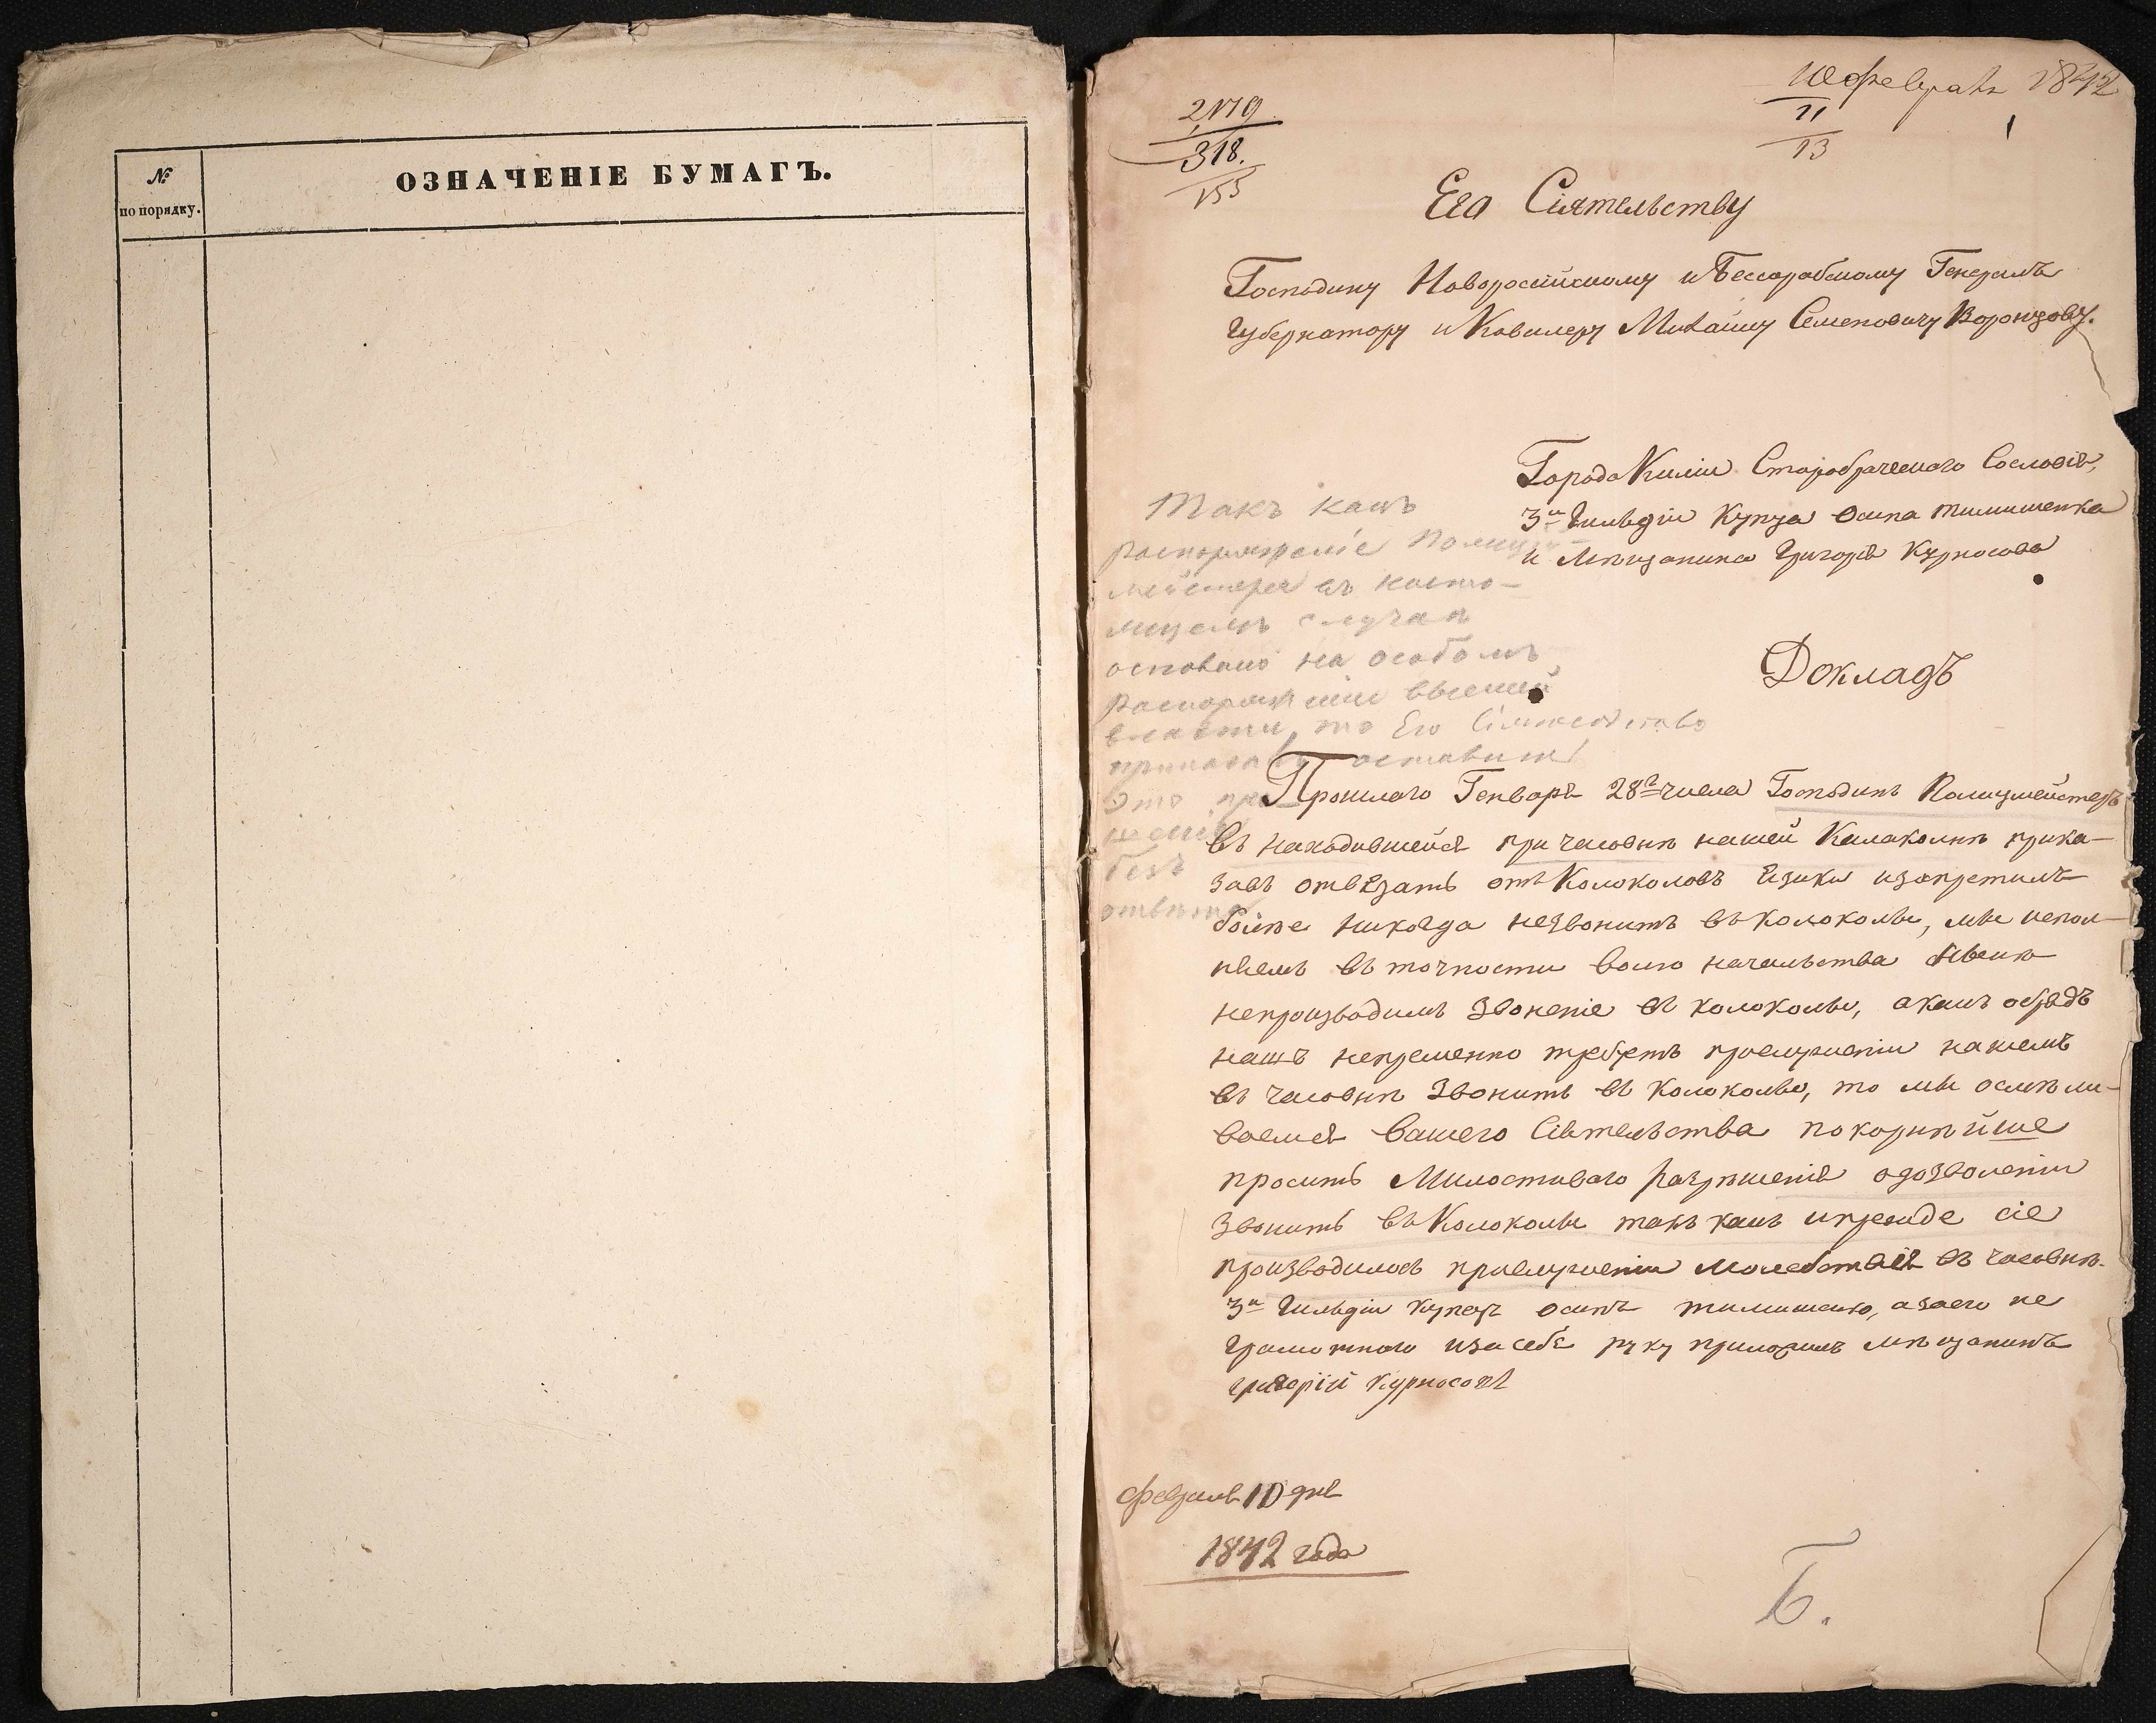 №
по порядку.
ОЗНАЧЕНІЕ БУМАГЪ.
2179
318.
155
10 февраля 1842
11
13
1
Его Сіятельству
Господину Новоросійскому и Бессорабскому Генералъ
Губернатору и Кавалеру Михаилу Семеновичу Воронцову.
Города Киліи Старобраческаго Сословія,
3й Гильдіи Купца Осипа Тимишенка
и Мѣщанина Григорія Курносова
Докладъ
Такъ какъ
распоряженіе Полиц-
мейстера въ насто-
ящемъ случаѣ
основано на особомъ
распоряженіи высшей
власти, то Его Сіятельство
приказалъ оставить
это про-
шеніе
безъ
отвѣта
Прошлаго Генваря 28го числа Господинъ Полицмейстеръ
въ находившейся при часовнѣ нашей Калакольнѣ прика-
завъ отвязать отъ Колоколовъ Язики изапретилъ
болѣе никогда незвонить въ колоколы, мы испол-
няемъ въ точности волю начальства
непроизводимъ звоненіе въ колоколы, а какъ обрядъ
нашъ непременно требуетъ прислуженіи нашемъ
въ часовнѣ звонить въ колоколы, то мы осмѣли-
ваемся Вашего Сіятельства покорнѣйше
просить Милостиваго Разрѣшенія одозволеніи
звонить въ Колоколы такъ какъ ипрежде сіе
производилось прислуженіи молебствія въ часовнѣ.
3й Гильдіи купецъ Осипъ Тимишенко, азаего не
грамотнаго изасебя руку приложилъ мѣщанинъ
Григорій Курносовъ
Февраля 10 дня
1842 года
Б.